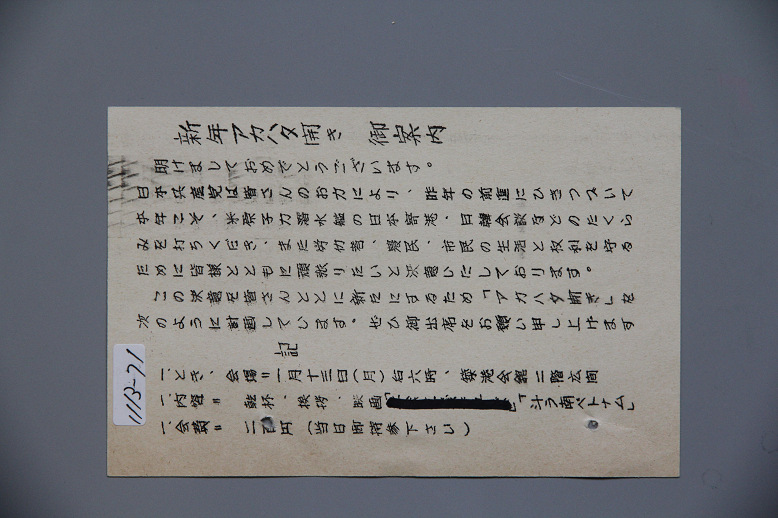 新年アカハタ開き 御案内
明けましておめでとうございます。
日本共産党は皆さんのお力により、昨年の前進にひきつづいて
本年こそ、米原子力潜水艦の日本寄港、日韓会談などのたくら
みを打ちくだき、また労仂者、農民、市民の生活と权利を守る
ために皆様とともに頑張りたいと決意いたしております。
この決意を皆さんとともに新たにするため「アカハタ開き」を
次のように計画しています。ぜひ御出席をお願い申し上げます
記
一、とき、会場〃一月十三日(月)右六時、築港会舘二階広間
一、内容〃 乾杯、挨拶、映画「 」「斗う南ベトナム」
一、会費〃 二百円(当日御持参下さい)
1113-71